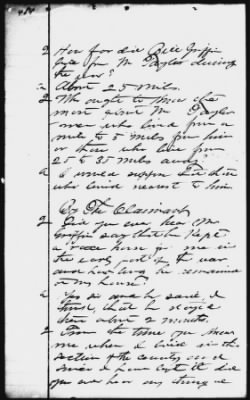 Q How far did Bill Griffin
live from Mr Taylor during
the war?
a About 25 mils.
Q Who ought to know the
most about Mr Taylor
men who lived from a
mile to 5 mils from him
or those who live from
25 to 35 miles away?
a I would suppose
who lived nearest to him
By The Claimant
Q Did you ever hear Mr
Griffin say that he kept
a race horse for me in
the early part of the war
and how long he remained
in my house?
a Yes sir and he said, I
think, that he staid
there about 2 months.
Q From the time you knew
me when I lived in this
section of the country and
since I have left it did
you ever hear any thing